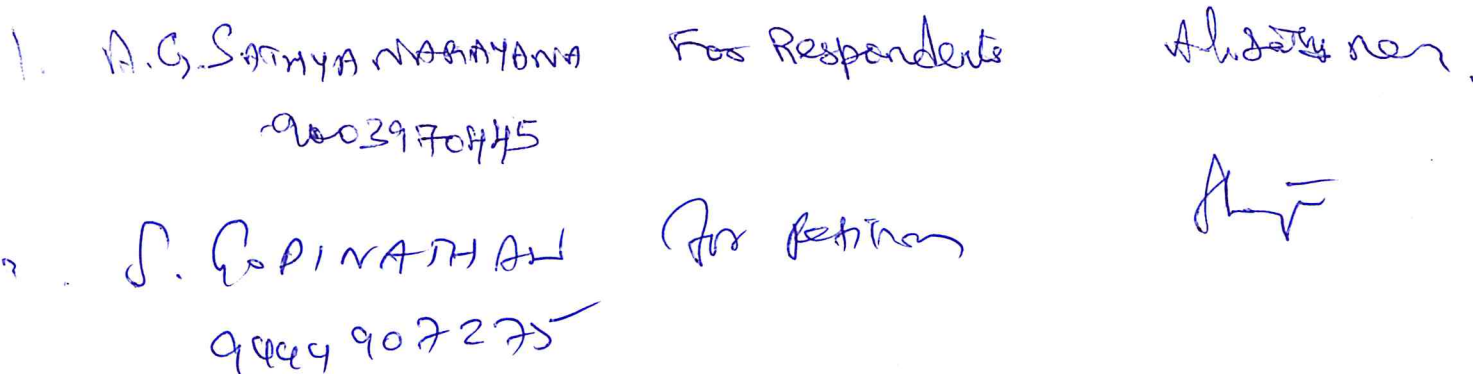 1. A.G. SATHYA NARAYANA For Respondents
9003970445
S. GOPINATHAN For Petitioner
9444907275